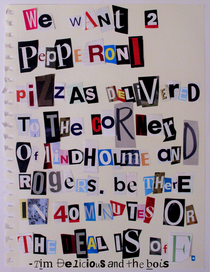 We wANT 2
PePPeRONI
piZZAS DeLIVeReD
TO THe CORNeR
Of LeNDHOLMe AND
ROGeRS. be THeRe
IN 40 MINUTeS OR
THe DeAL IS oFF.
-Tim Delicious and the bois